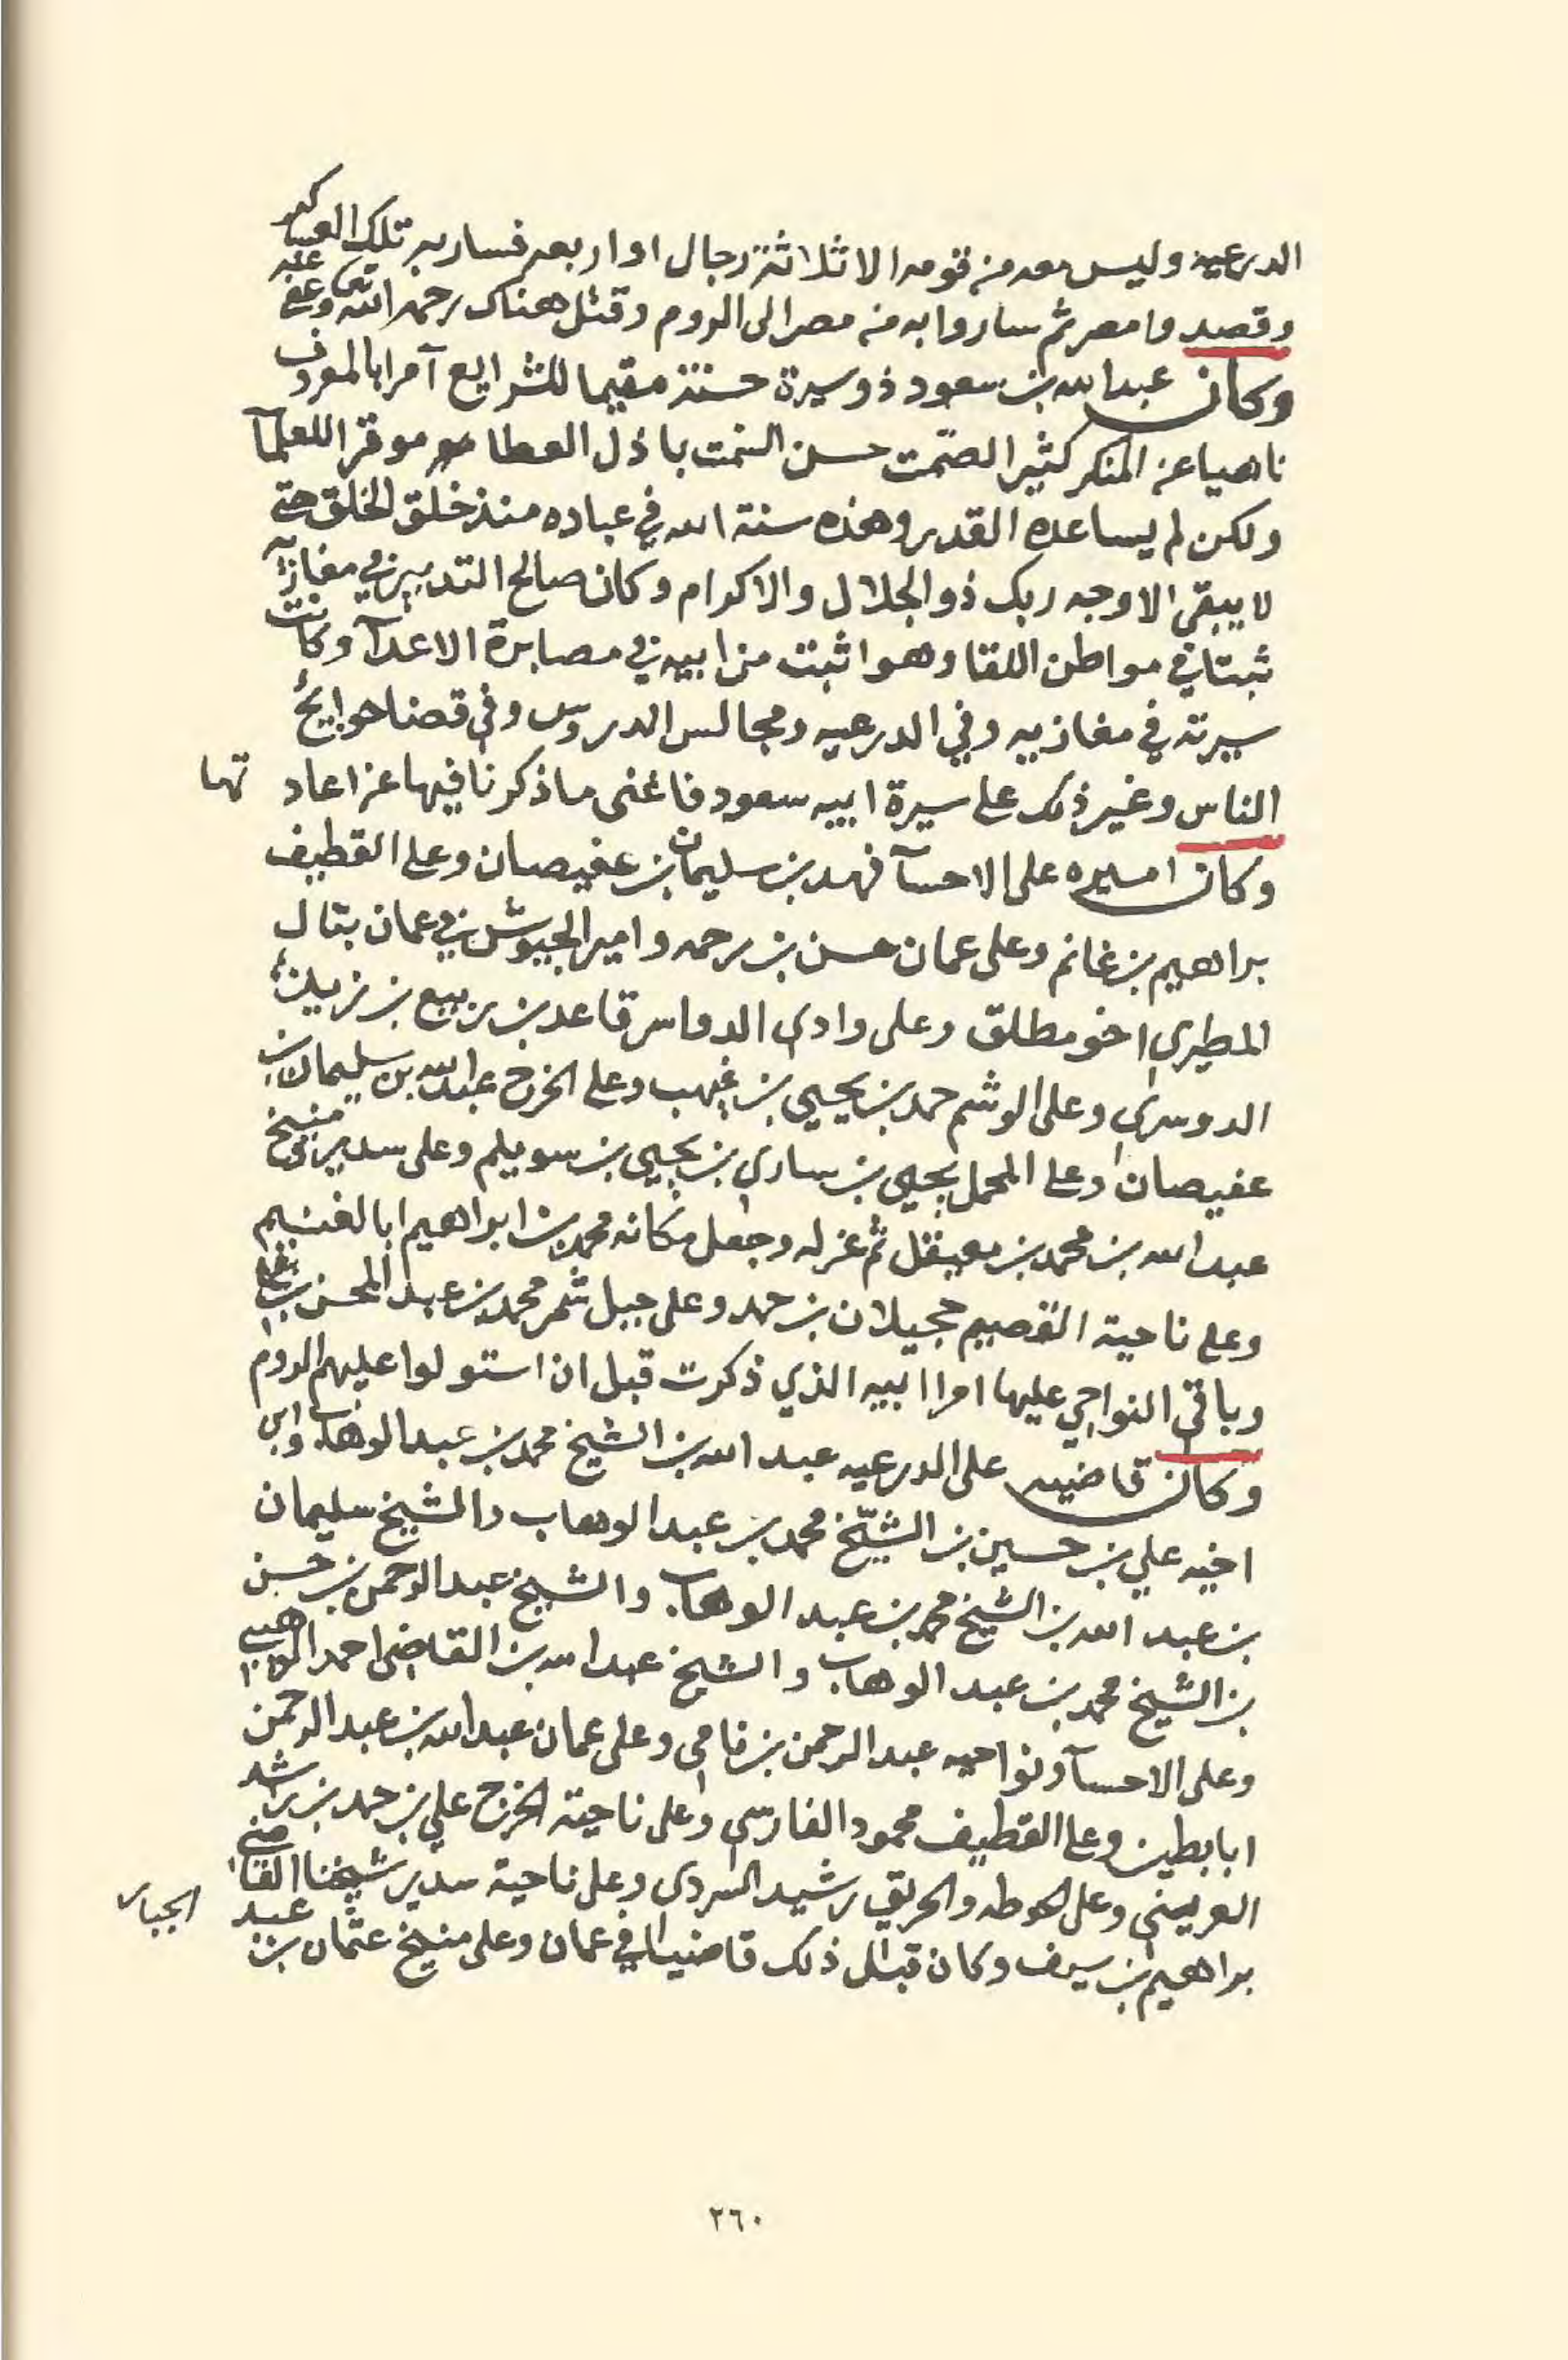 الدرعيه وليس معه من قومه الا ثلاثة رجال او اربعه فسار به تلك العساكر
وقصدوا مصر ثم ساروا به من مصر الى الروم وقتل هناك رحمه الله تعالى وعفى عنه
وكان عبدالله بن سعود ذو سيرة حسنة مقيما للشرايع آمرا بالمعروف
ناهيا عن المنكر كثير الصمت حسن السمت باذل العطا موقرا للعلمآ
ولكن لم يساعده القدر وهذه سنة الله في عباده منذ خلق الخلق حتى
لا يبقى الا وجه ربك ذو الجلال والاكرام وكان صالح التدبير في مغازيه
ثبتا في مواطن اللقا وهو اثبت من ابيه في مصابرة الاعدآ وكانت
سيرته في مغازيه وفي الدرعيه ومجالس الدروس وفي قضا حوايج
الناس وغير ذلك على سيرة ابيه سعود فاغنى ما ذكرنا فيها عن اعادتها
وكان اميره على الاحسآ فهد بن سليمان بن عفيصان وعلى القطيف
براهيم بن غانم وعلى عمان حسن بن رحمه وامير الجيوش في عمان بتال
المطيري اخو مطلق وعلى وادي الدواسر قاعد بن ربيع بن زيد
الدوسري وعلى الوشم حمد بن يحيى بن غيهب وعلى الخرج عبدالله بن سليمان بن
عفيصان وعلى المحمل يحيى بن ساري بن يحيى بن سويلم وعلى سدير ومنيخ
عبدالله بن محمد بن معيقل ثم عزله وجعل مكانه محمد بن ابراهيم ابا لغنيم
وعلى ناحية القصيم حجيلان بن حمد وعلى جبل شمر محمد بن عبد المحسن بن علي
وباقي النواحي عليها امرا ابيه الذي ذكرت قبل ان استولوا عليهم الروم
وكان قاضيه على الدرعيه عبد الله بن الشيخ محمد بن عبد الوهاب وابن
اخيه علي بن حسين بن الشيخ محمد بن عبد الوهاب والشيخ سليمان
بن عبد الله بن الشيخ محمد بن عبد الوهاب والشيخ عبد الرحمن بن حسن
بن الشيخ محمد بن عبد الوهاب والشيخ عبد الله بن القاضي احمد الوهيبي
وعلى الاحسآ ونواحيه عبد الرحمن بن نامي وعلى عمان عبد الله بن عبد الرحمن
ابا بطين وعلى القطيف محمود الفارسي وعلى ناحية الخرج علي بن حمد بن راشد
العريني وعلى الحوطه والحريق رشيد السردي وعلى ناحية سدير شيخنا القاضي
براهيم بن سيف وكان قبل ذلك قاضيا في عمان وعلى منيخ عثمان بن عبد الجبار
٢٦٠